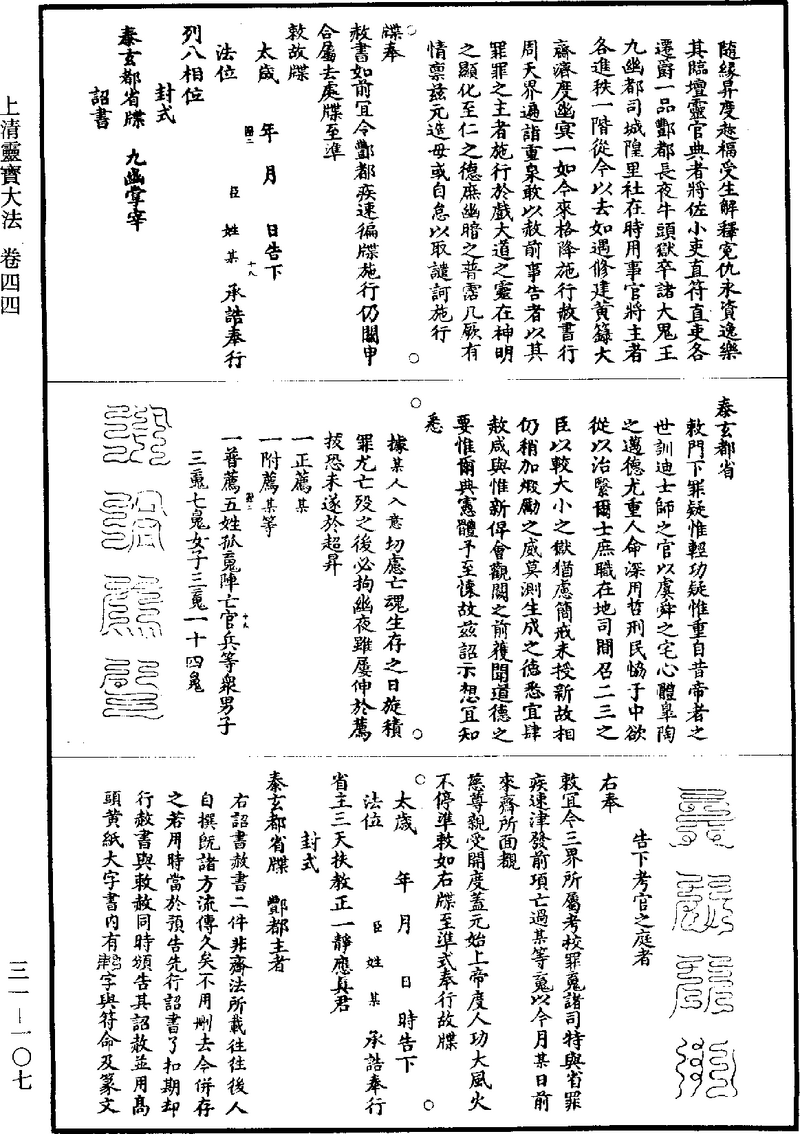 隨緣昇度趂福受生解釋冤仇永資逸樂
其臨壇靈官典者將佐小吏直符直吏各
遷爵一品酆都長夜牛頭獄卒諸大鬼王
九幽都司城隍里社在時用事官將主者
各進秩一階從今以去如遇修建黃籙大
齋濟度幽冥一如今來格降施行赦書行
周天界遍詣重泉敢以赦前事告者以其
罪罪之主者施行於戲大道之靈在神明
之顯化至仁之德庶幽暗之普霑凡厥有
情禀兹元造毋或自怠以取譴訶施行
牒奉
赦書如前宜令酆都疾速徧牒施行仍關申
合屬去處牒至準
敕故牒
太歲 年 月 日告下
法位 臣 姓 某 承誥奉行
列八相位
封式
泰玄都省牒 九幽掌宰
詔書
泰玄都省
敕門下罪疑惟輕功疑惟重自昔帝者之
世訓迪士師之官以虞舜之宅心體皐陶
之邁德尤重人命深用哲刑民恊于中欲
從以治繄爾士庶職在地司間召二三之
臣以較大小之獄猶慮簡戒未授新故相
仍稍加煅勵之威莫測生成之德悉宜肆
赦咸與惟新俾會觀闕之前獲聞道德之
要惟爾典憲體予至懷故兹詔示想宜知
悉
據某人入意切慮亡魂生存之日旋積
罪尤亡歿之後必拘幽夜雖屢伸於薦
拔恐未遂於超昇
一正薦某
一附薦某等
一普薦五姓孤䰟陣亡官兵等衆男子
三䰟七魄女子三䰟一十四魄
告下考官之庭者
右奉
敕宜令三界所屬考校罪䰟諸司特與省罪
疾速津發前項亡過某等䰟以今月某日前
來齋所面覲
慈尊親受開度蓋元始上帝度人功大風火
不停準敕如右牒至準式奉行故牒
太歲 年 月 日 時告下
法位 臣 姓 某 承誥奉行
省主三天扶教正一靜應真君
封式
泰玄都省牒 酆都主者
右詔書赦書二件非齋法所載往往後人
自撰旣諸方流傳久矣不用刪去今併存
之若用時當於預告先行詔書了扣期却
行赦書與敕赦同時頒告其詔赦並用髙
頭黄紙大字書内有字與符命及篆文
上清靈寶大法 卷四四
三一－一〇七